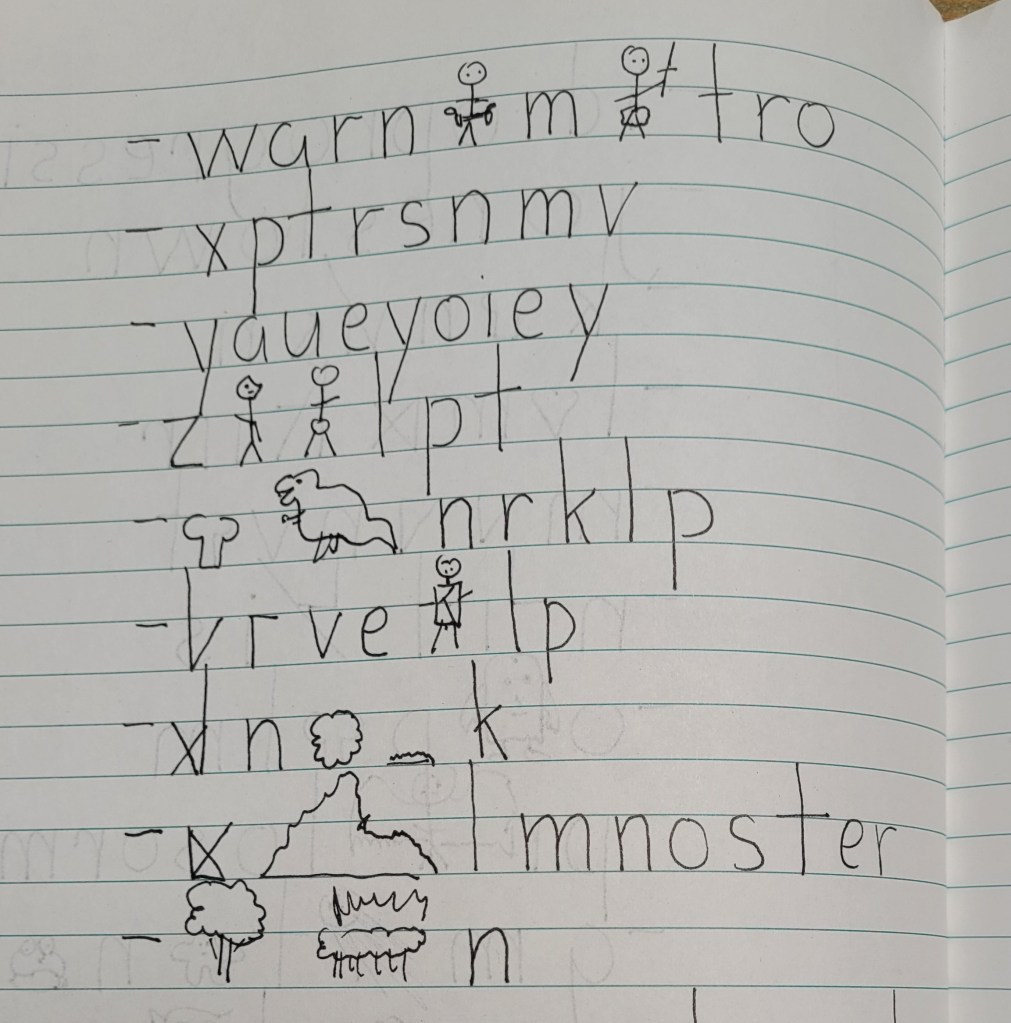 - warn m tro
- xptrsnmv
- yaueyoiey
- z lpt
- nrklp
- vrve lp
- xln k
- x lmnoster
- n